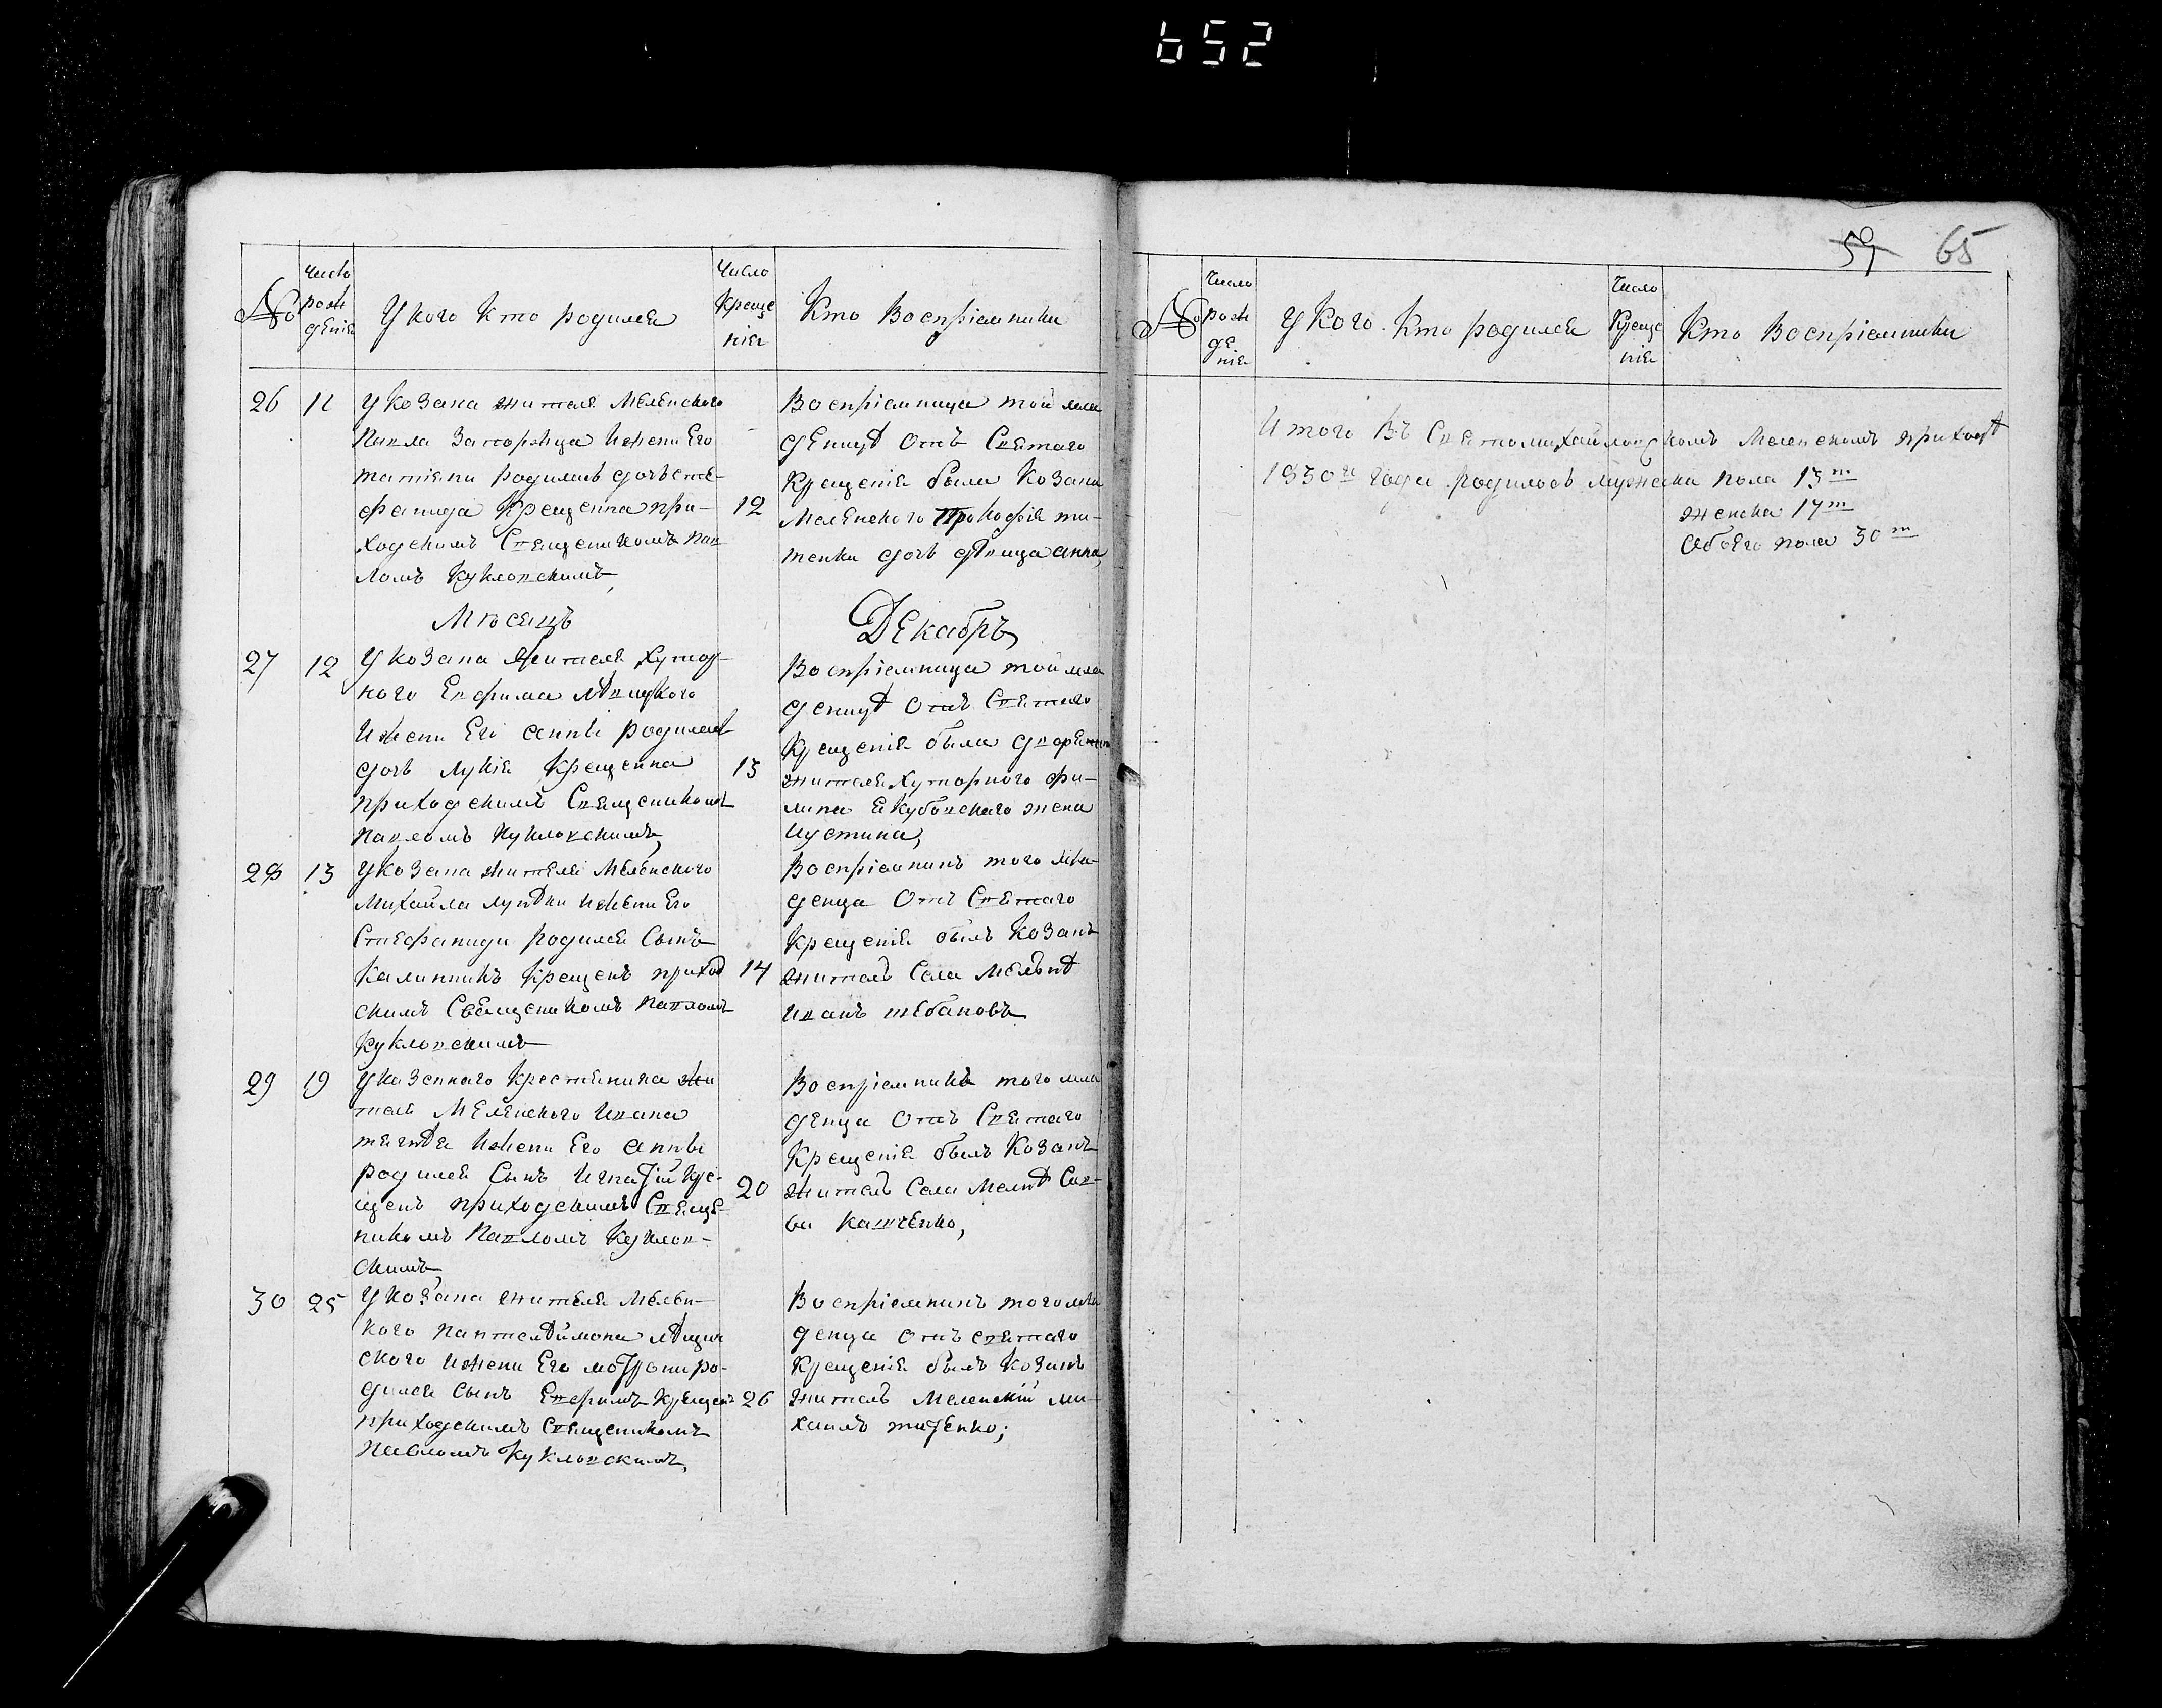 652
59 65
№
число рож дения
У кого кто родился
число креще ния
Кто восприемники
26
11
У козака жителя Меленского
Павла Запорожца и жени Его
татияни родилась дочь сте-
фанида крещенна при-
ходскимъ Священикомъ пав
ломъ Кукловскимъ,
12
Восприемница той мла
денцѣ отъ Святаго
Крещения была козака
Меленского Прокофия ти-
тенки дочь дѣвица анна,
Мѣсяцъ
Декабръ
27
12
У козака жителя Хутор-
ного Евфима Лѣницкого
и жени Его анны родилась
дочь лукия крещенна
приходскимъ Священикомъ
павломъ кукловскимъ,
13
Восприемница той мла
денцѣ отъ Святаго
Крещения была дворянина
жителя Хуторного фи-
липа Якубовского жена
иустина,
28
13
У козака жителя Меленского
Михаила и жени Его
Стефаниди родился Сынъ
каллиникъ крещенъ приход
скимъ Священикомъ павломъ
кукловскимъ
14
Восприемникъ того мла-
денца отъ Святаго
Крещения былъ козакъ
житель Села Меленѣ
иванъ шебановъ
29
19
У казенного крестянина жи
теля Меленского ивана
и жени Его анны
родился Сынъ игнатий кре-
щенъ приходскимъ Свяще-
никомъ павломъ Куклов-
скимъ
20
Восприемникъ того мла
денца отъ Святаго
Крещения былъ козакъ
житель Села Меленѣ Сав-
ва кавченко,
30
25
У козака жителя Мелен-
кого пантелѣимона лѣниц
ского и жени Его мотрони ро-
дился Сынъ Евфимъ крещенъ
приходскимъ Священикомъ
павломъ кукловскимъ,
26
Восприемникъ того мла
денца отъ святаго
Крещения былъ козакъ
житель Меленский ми-
хаилъ титенко;
№
число рож де ния
У кого кто родился
число креще ния
Кто восприемники
Итого въ Святомихайловскомъ Меленскомъ приходѣ
1830го года родилось мужеска пола 13т
женска 17т
обоего пола 30т